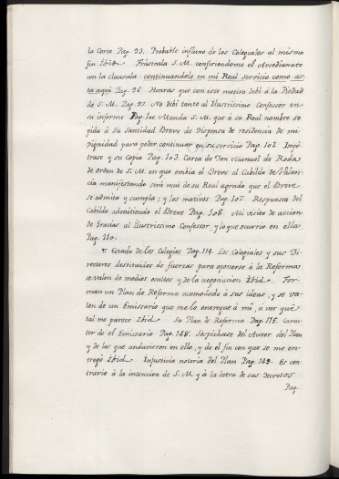 la Corte Pag. 93. Probable influxo de los Colegiales al mismo
fin Ibid. Frústrala S.M. confiriendome el Arcedianato
con la clausula continuandole en mi Real servicio como as-
ta aqui Pag. 96. Honras que con este motivo debí á la Piedad
de S.M. Pag. 97. No debí tanto al Ilustrisimo Confesor en
su informe Pag. Manda S.M. que á su Real nombre se
pida á Su Santidad Breve de dispensa de residencia de mi
Dignidad para poder continuar quí su servicio Pag. 102. Impé-
trase y su Copia Pag. 103. Carta de Don Manuel de Roda
de orden de S.M. en que embia el Breve al Cabildo de Palen-
cia manifestando será mui de su Real agrado que el Breve
se admita y cumpla; y los motivos Pag. 107. Respuesta del
Cabildo admitiendo el Breve Pag. 108. Mi visita de accion
de Gracias al Ilustrisimo Confesor y lo que ocurrio en ella
Pag. 110.
Estado de los Colegios Pag. 114. Los Colegiales y sus Di-
rectores destituidos de fuerzas para oponerse á la Reforma
se valen de medios ocultos y de la negociacion Ibid. For-
man un Plan de Reforma acomodado á sus ideas, y se va-
len de un Emisario que me lo entregue á mí, a ver qué
tal me parece Ibid. Su Plan de Reforma Pag. 115. Carac-
ter de el Emisario Pag. 148. Sospechase del Autor del Plan
y de los que anduvieron en ello, y de el fin con que se me en-
tregó Ibid. Injusticia notoria del Plan Pag. 149. Es con-
trario á la intencion de S.M. y á la letra de sus Decretos
Pag.